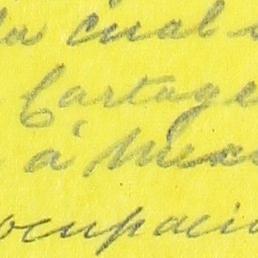 la cual
Cartage
á Mexi
ocupacio